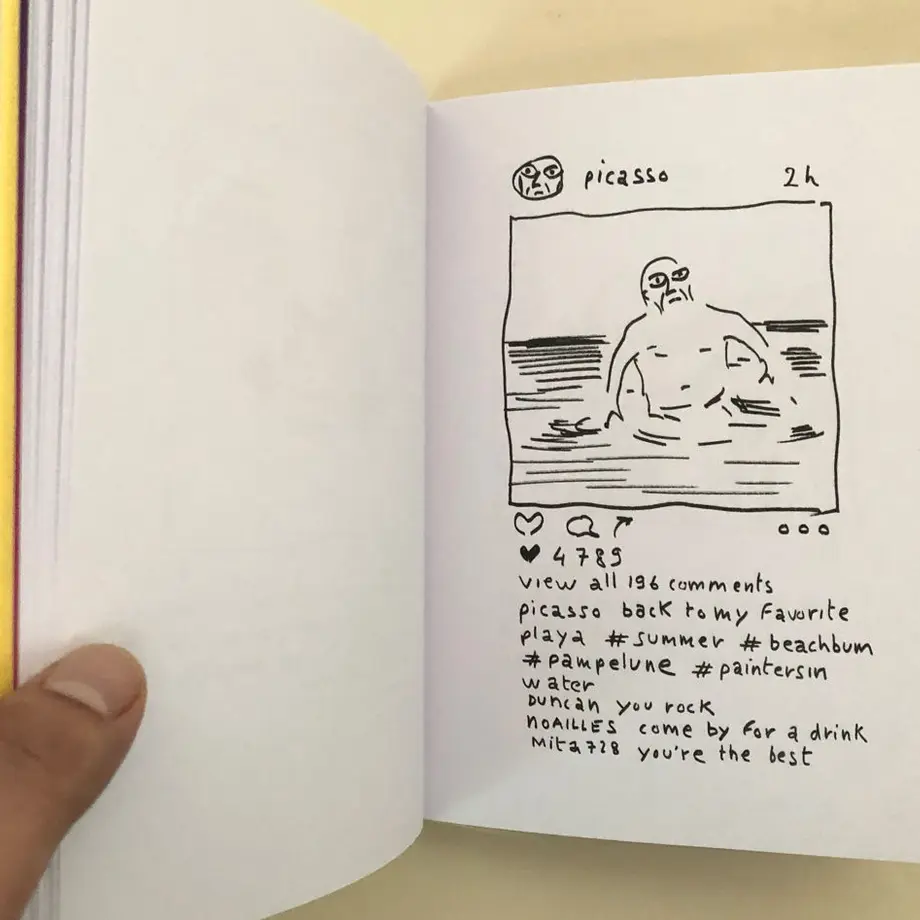 picasso 2h
4789
view all 196 comments
picasso back to my Favorite
playa #summer #beachbum
#pampelune #paintersin
water
Duncan you rock
noAILLES come by for a drink
Mita728 you're the best